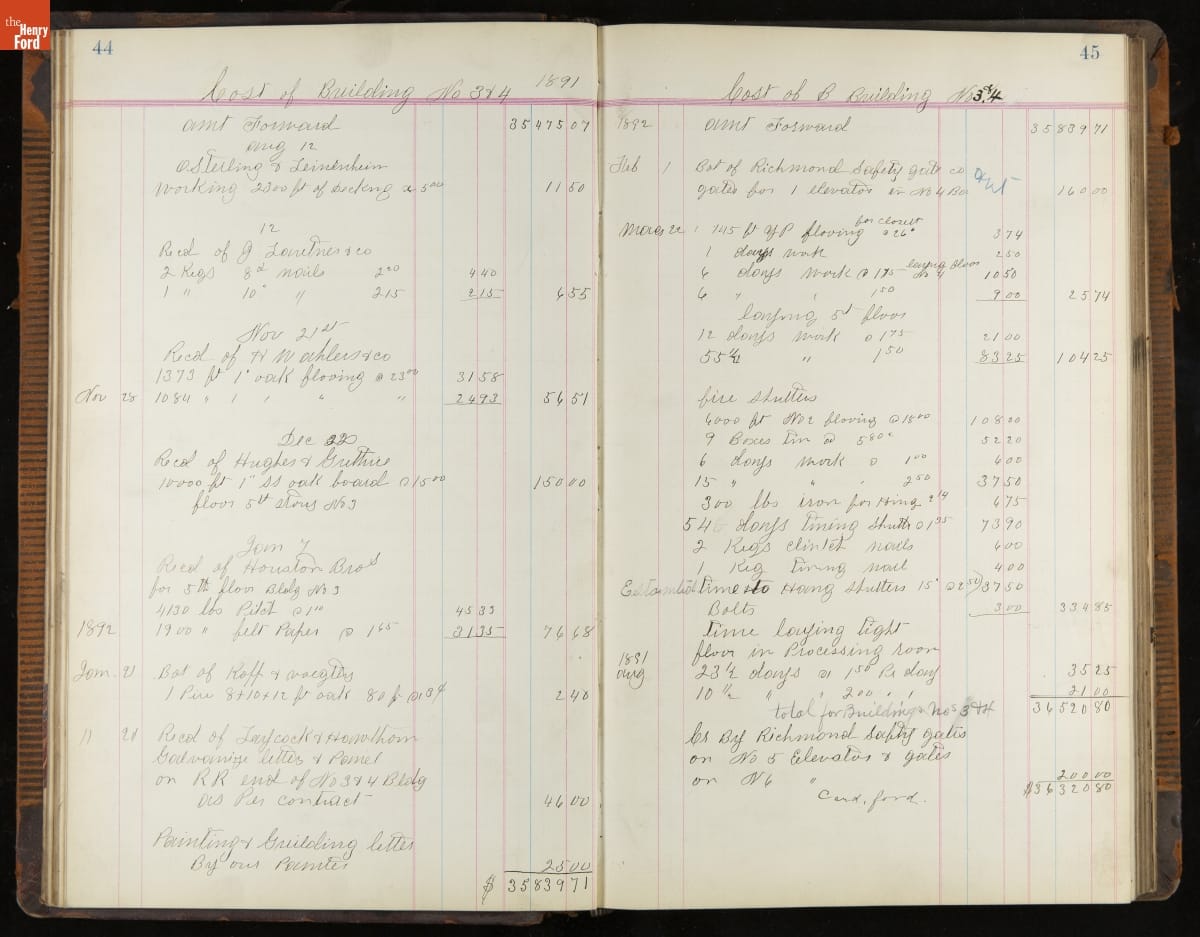 the Henry Ford
44
Cost of Building No 3&4 1891
amt Forward 35475 07
aug 12
O Sterling & Leinenheim
Working 2300 ft of Decking @ 5 00 11 50
12
Recd of J & co
2 Kegs 8d nails 2 20 4 40
1 " 10d " 2 15 2 15 6 55
Nov 21st
Recd of H Wahlers & co
1373 ft 1" oak flooring @ 23 00 31 58
Nov 28 1084 " 1 " " " 24 93 56 51
Dec 22
Recd of Hughes & Guthrie
10000 ft 1" SS oak board @ 15 00 150 00
floor 5th Story No 3
Jan 7
Recd of Houston Bros
for 5th floor Bldg No 3
4130 lbs Pitch @ 1 10 45 33
1892 1900 " felt Paper @ 1 65 31 35 76 68
Jan 21 Bot of Koff & voegtly
1 Piece 8+10+12 ft oak 80 ft @ 3¢ 2 40
" 21 Recd of Laycock & Hawthorn
Galvanize letter & Panel
on RR end of No 3&4 Bldg
as Per contract 46 00
Painting & Guilding letter
By our Painter 25 00
$ 35839 71
45
Cost of B Building Nos 3&4
1892 amt Forward 35839 71
Feb 1 Bot of Richmond Safety gate co
gates for 1 elevator in No 4 160 00
March 22 145 ft YP flooring for closet @ 26 00 3 74
1 days work 2 50
6 days work @ 1 75 laying floor No 4 10 50
6 " " 1 50 9 00 25 74
laying 5th floor
12 days work @ 1 75 21 00
55½ " 1 50 83 25 104 25
fire Shutters
6000 ft No 2 flooring @ 18 00 108 00
9 Boxes tin @ 5 80 52 20
6 days work @ 1 00 6 00
15 " " 2 50 37 50
300 lbs iron for Hing 2¼ 6 75
54 days tining Shutter @ 1 35 73 90
2 Kegs clinch nails 6 00
1 Keg tining nail 4 00
Estamited time to Hang Shutters 15 @ 2 50 37 50
Bolts 3 00 334 85
time laying tight
floor in Processing room
1891
aug 23½ days @ 1 50 Pr day 35 25
10½ " " 2 00 " " 21 00
total for Buildings Nos 3 & 4 36520 80
Cr By Richmond Safty gates
on No 5 Elevator & gates
on N 6 " 200 00
Card. ford. $36320 80